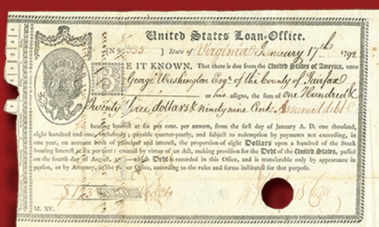 United States Loan-Office.
State of Virginia January 17th 1792
BE IT KNOWN, That there is due from the United States of America, unto
George Washington Esqr. of the County of Fairfax
or his assigns, the sum of One Hundred &
Twenty dollars & Ninety nine Cents Assumed debt
bearing interest at per cent. per annum, from the first day of January A. D. one thousand,
eight hundred and one, inclusively; payable quarter-yearly, and subject to redemption by payments not exceeding, in
one year, on account both of principal and interest, the proportion of eight Dollars upon a hundred of the Stock
bearing interest at six per cent. created by virtue of an Act, making provision for the Debt of the United States, passed
on the fourth day of August, Debt is recorded in this Office, and is transferable only by appearance in
person, or by Attorney, at the Office, according to the rules and forms instituted for that purpose.
M. XV.